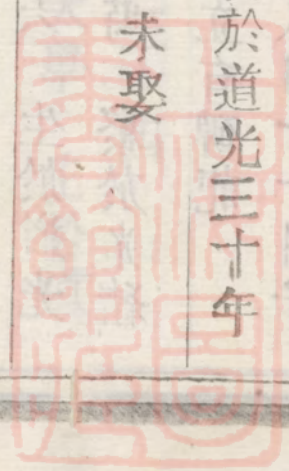 於道光三十年
未娶